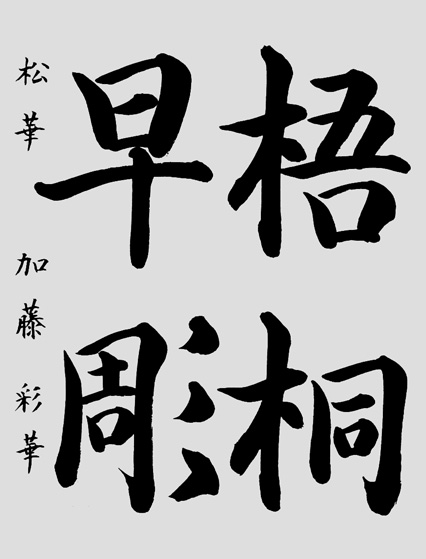 梧桐
早彫
松華 加藤彩華